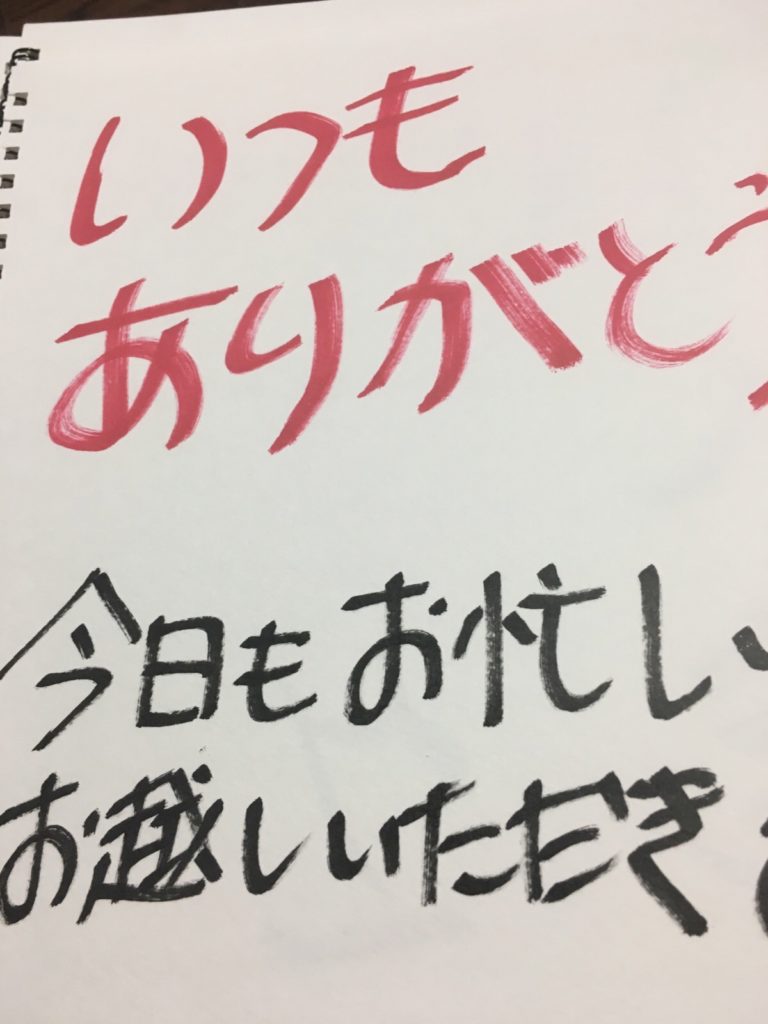 いつも
ありがとう
今日もお忙しい
お越しいただき